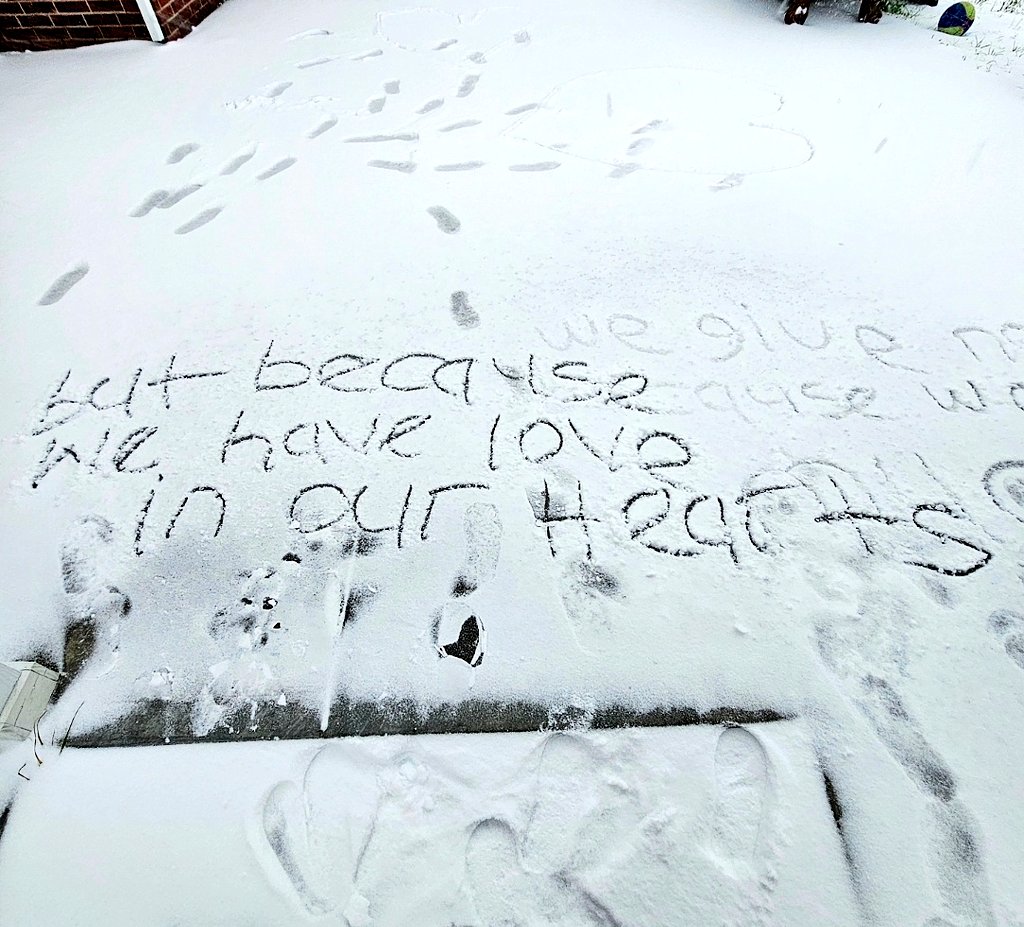 we give
but because
we have love
in our Hearts